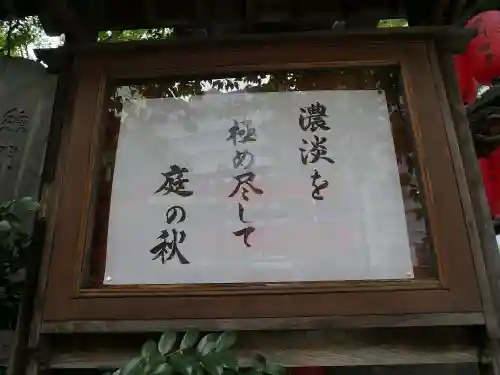 濃淡を
極め尽して
庭の秋